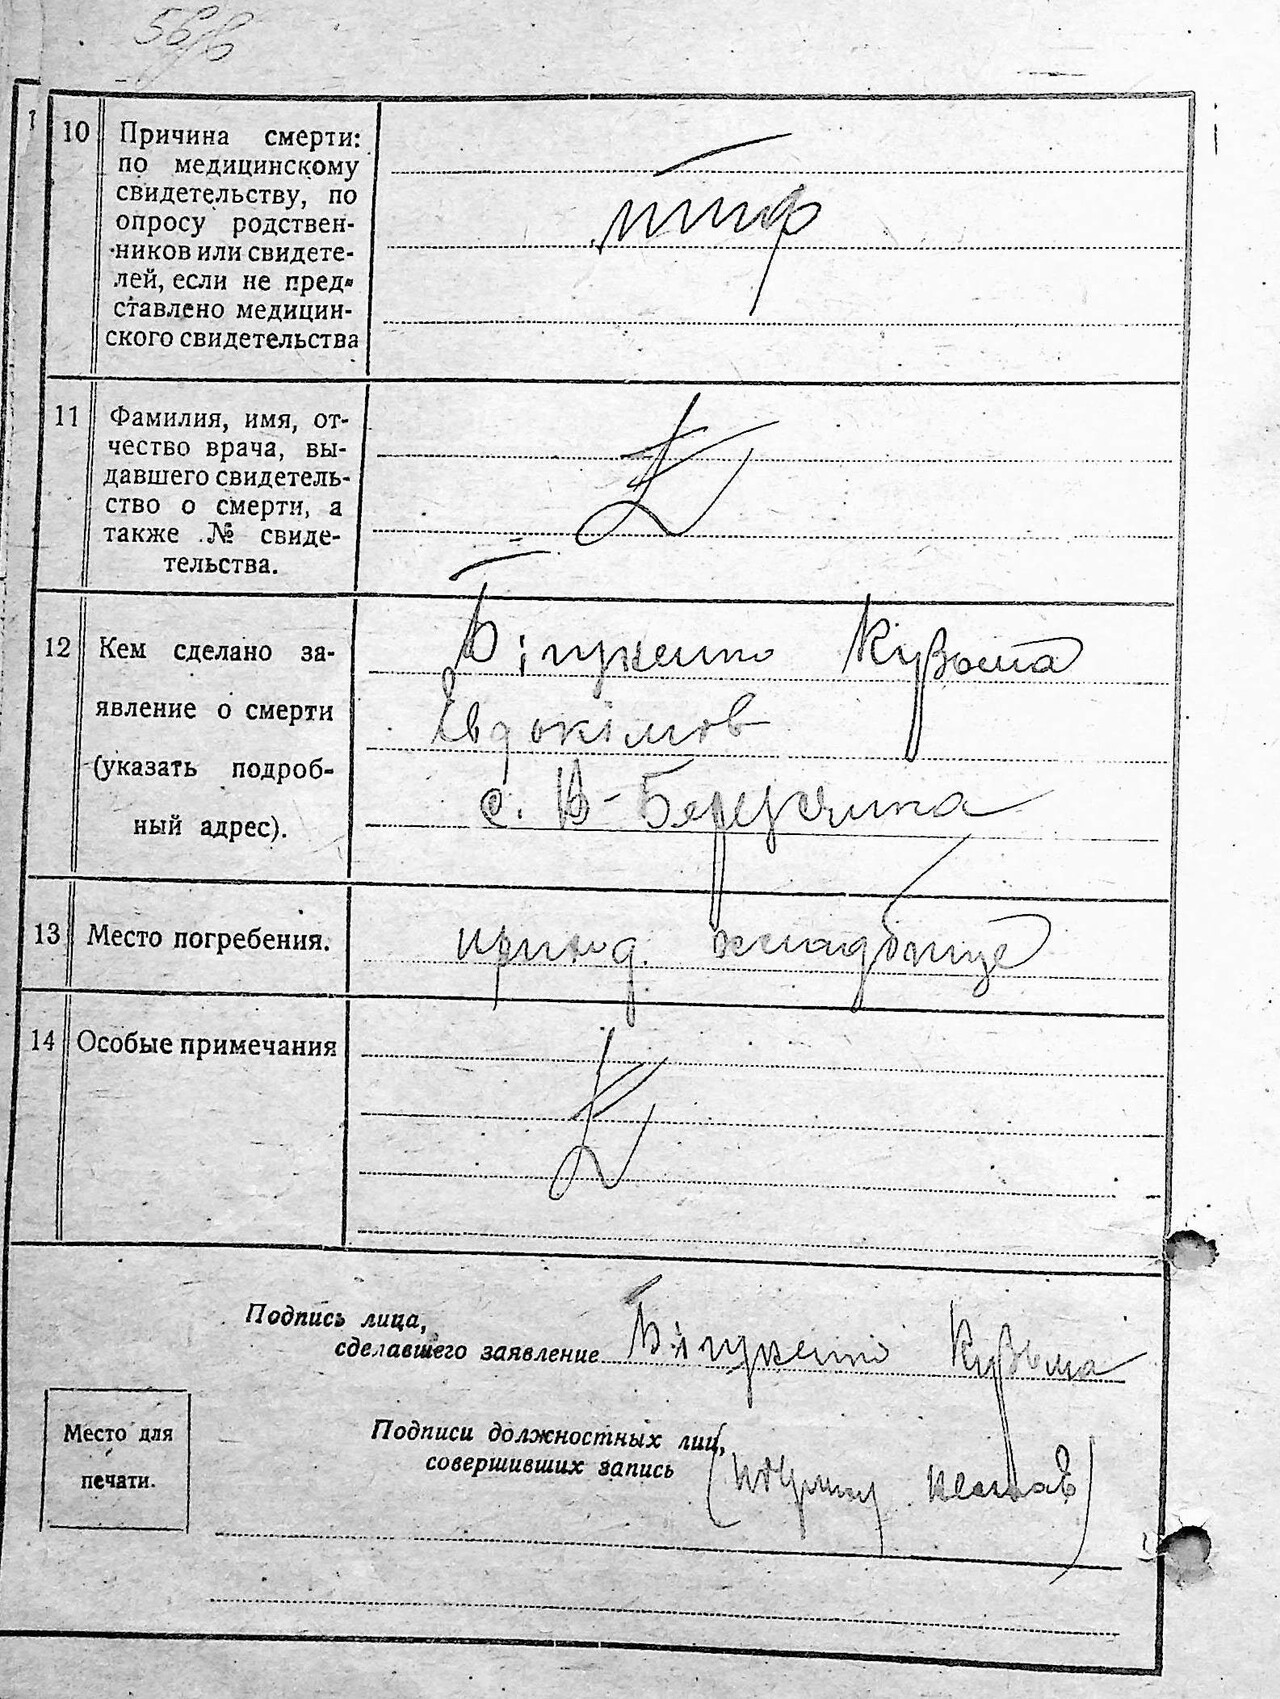 10 Причина смерти:
по медицинскому
свидетельству, по
опросу родствен-
ников или свидете-
лей, если не пред-
ставлено медицин-
ского свидетельства
тиф
11 Фамилия, имя, от-
чество врача, вы-
давшего свидетель-
ство о смерти, а
также № свиде-
тельства.
12 Кем сделано за-
явление о смерти
(указать подроб-
ный адрес).
Кузьма
Евдокімов
с. В-
13 Место погребения.
кладбище
14 Особые примечания
Подпись лица,
сделавшего заявление
Кузьма
Место для
печати.
Подписи должностных лиц,
совершивших запись